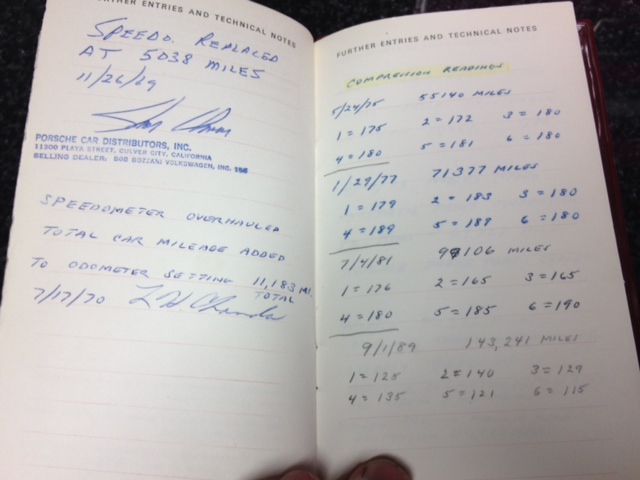 FURTHER ENTRIES AND TECHNICAL NOTES
SPEEDO. REPLACED
AT 5038 MILES
11/26/69
PORSCHE CAR DISTRIBUTORS, INC.
11300 PLAYA STREET, CULVER CITY, CALIFORNIA
SELLING DEALER: BOB BOZZANI VOLKSWAGEN, INC. 156
SPEEDOMETER OVERHAULED
TOTAL CAR MILEAGE ADDED
TO ODOMETER SETTING 11,183 MI.
TOTAL
7/17/70
FURTHER ENTRIES AND TECHNICAL NOTES
COMPRESSION READINGS
5/24/75 55140 MILES
1 = 175 2 = 172 3 = 180
4 = 180 5 = 181 6 = 180
1/29/77 71377 MILES
1 = 179 2 = 183 3 = 180
4 = 189 5 = 189 6 = 180
7/4/81 99106 MILES
1 = 176 2 = 165 3 = 165
4 = 180 5 = 185 6 = 190
9/1/89 143,241 MILES
1 = 125 2 = 140 3 = 129
4 = 135 5 = 121 6 = 115